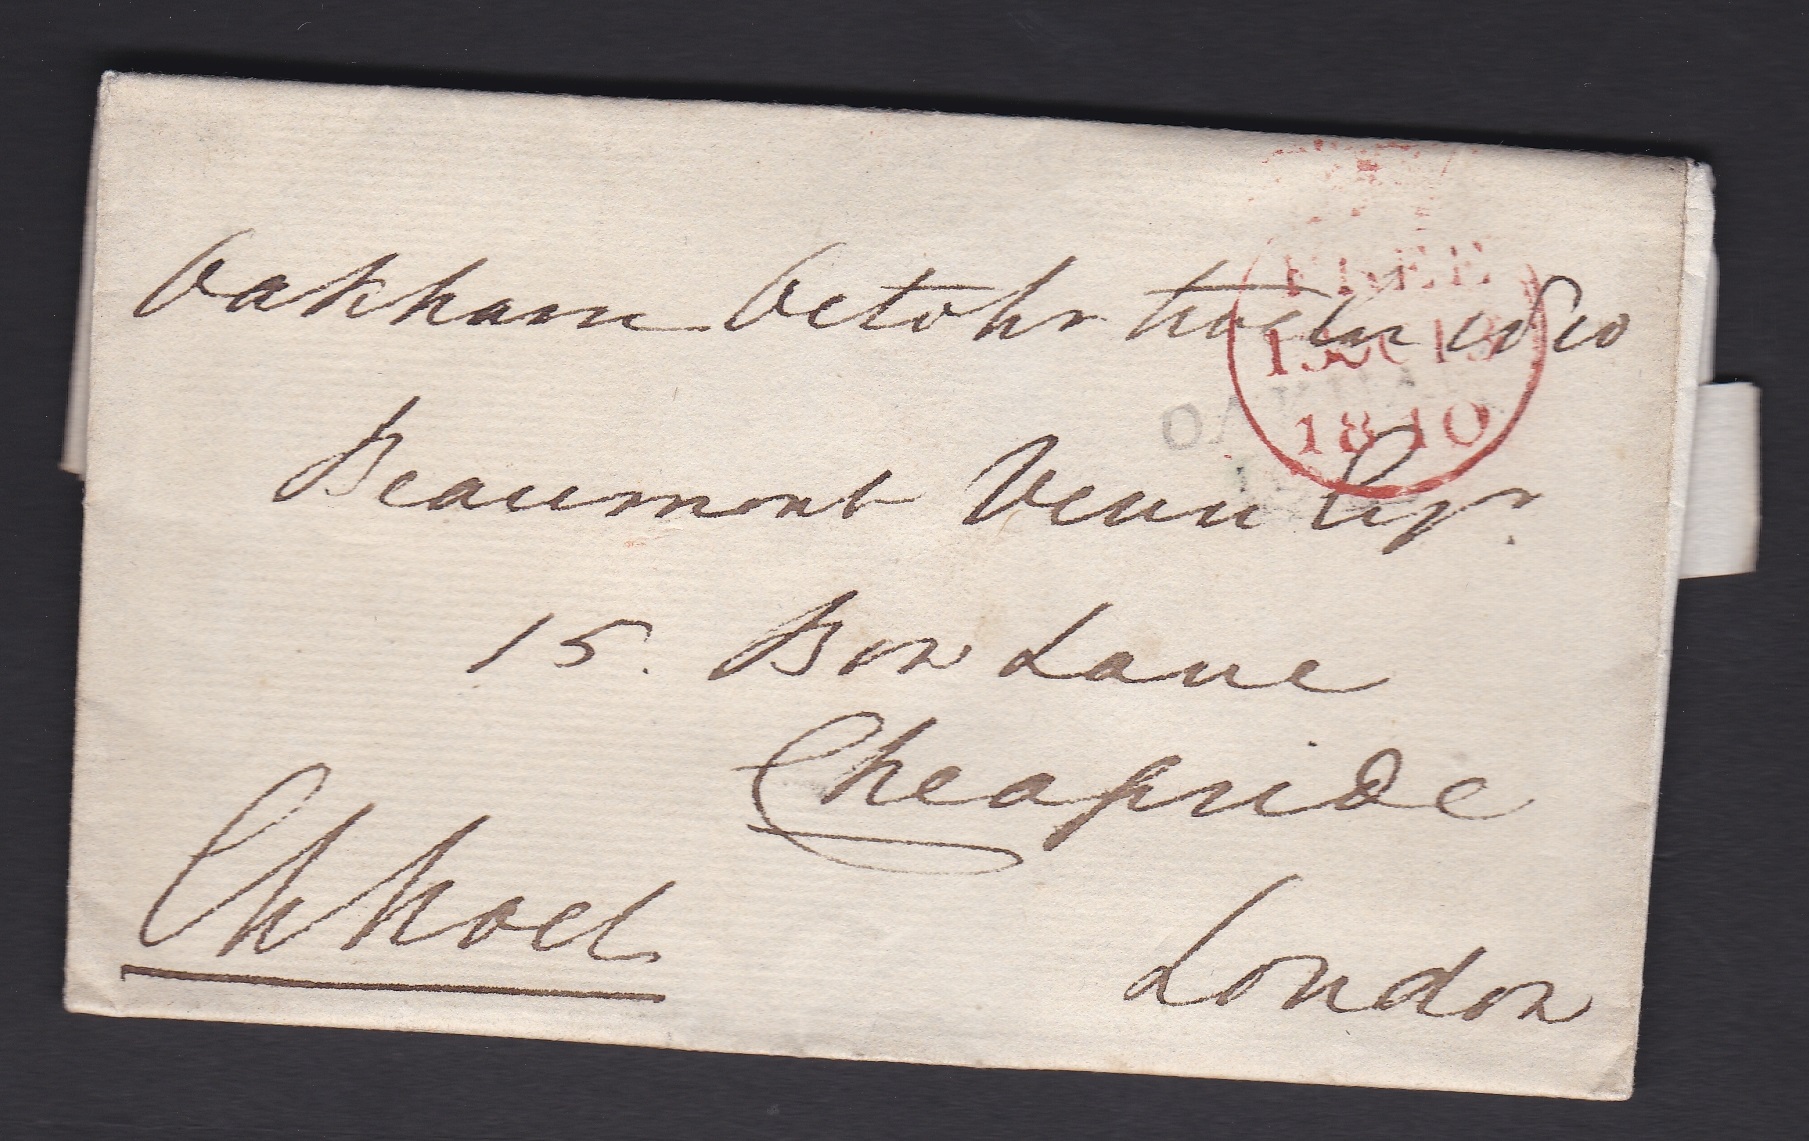 Oakham Octobr twelve 1810
FREE
13 OC 13
1810
OAKHAM
Beaumont Venn Esqr.
15. Bow Lane
Cheapside
Ch Noel
London